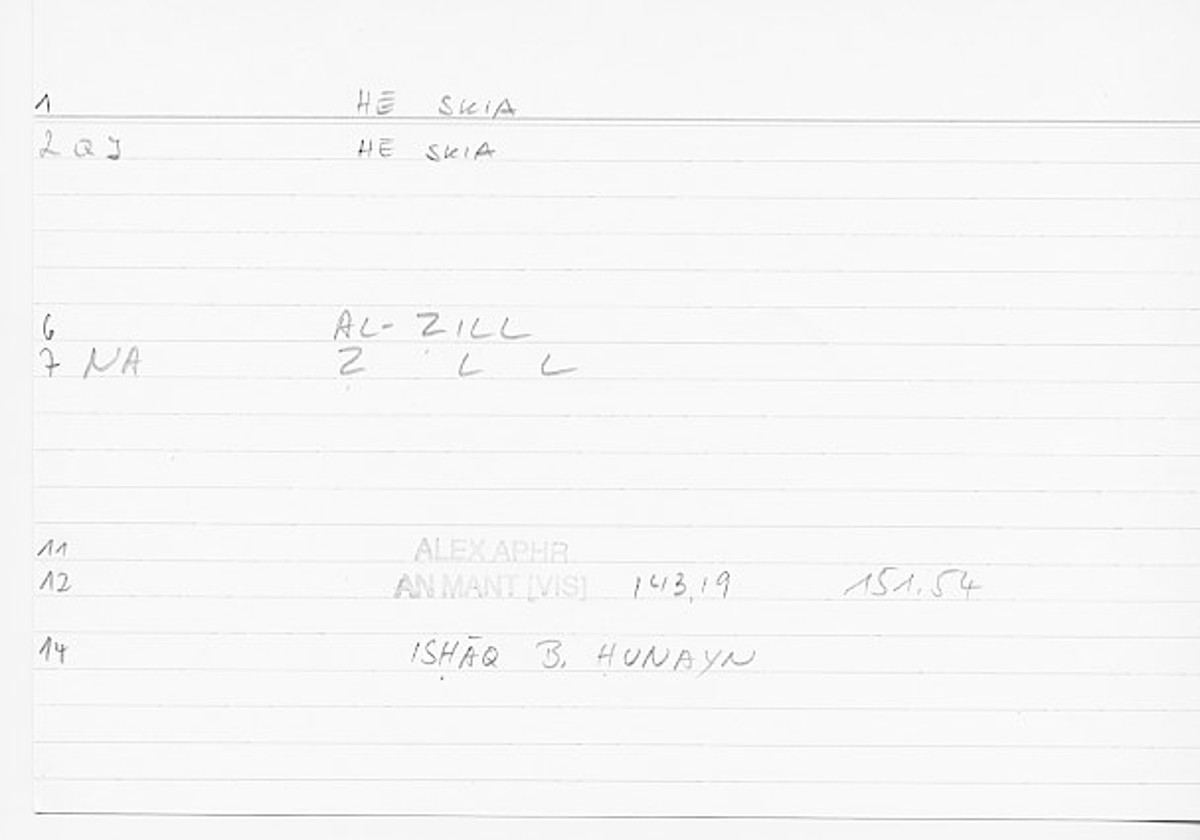 1 HĒ SKIA
2 QJ HĒ SKIA
6 AL-ẒILL
7 NA Ẓ L L
11 ALEX APHR
12 AN MANT [VIS] 143,19 151.54
14 ISḤĀQ B. ḤUNAYN